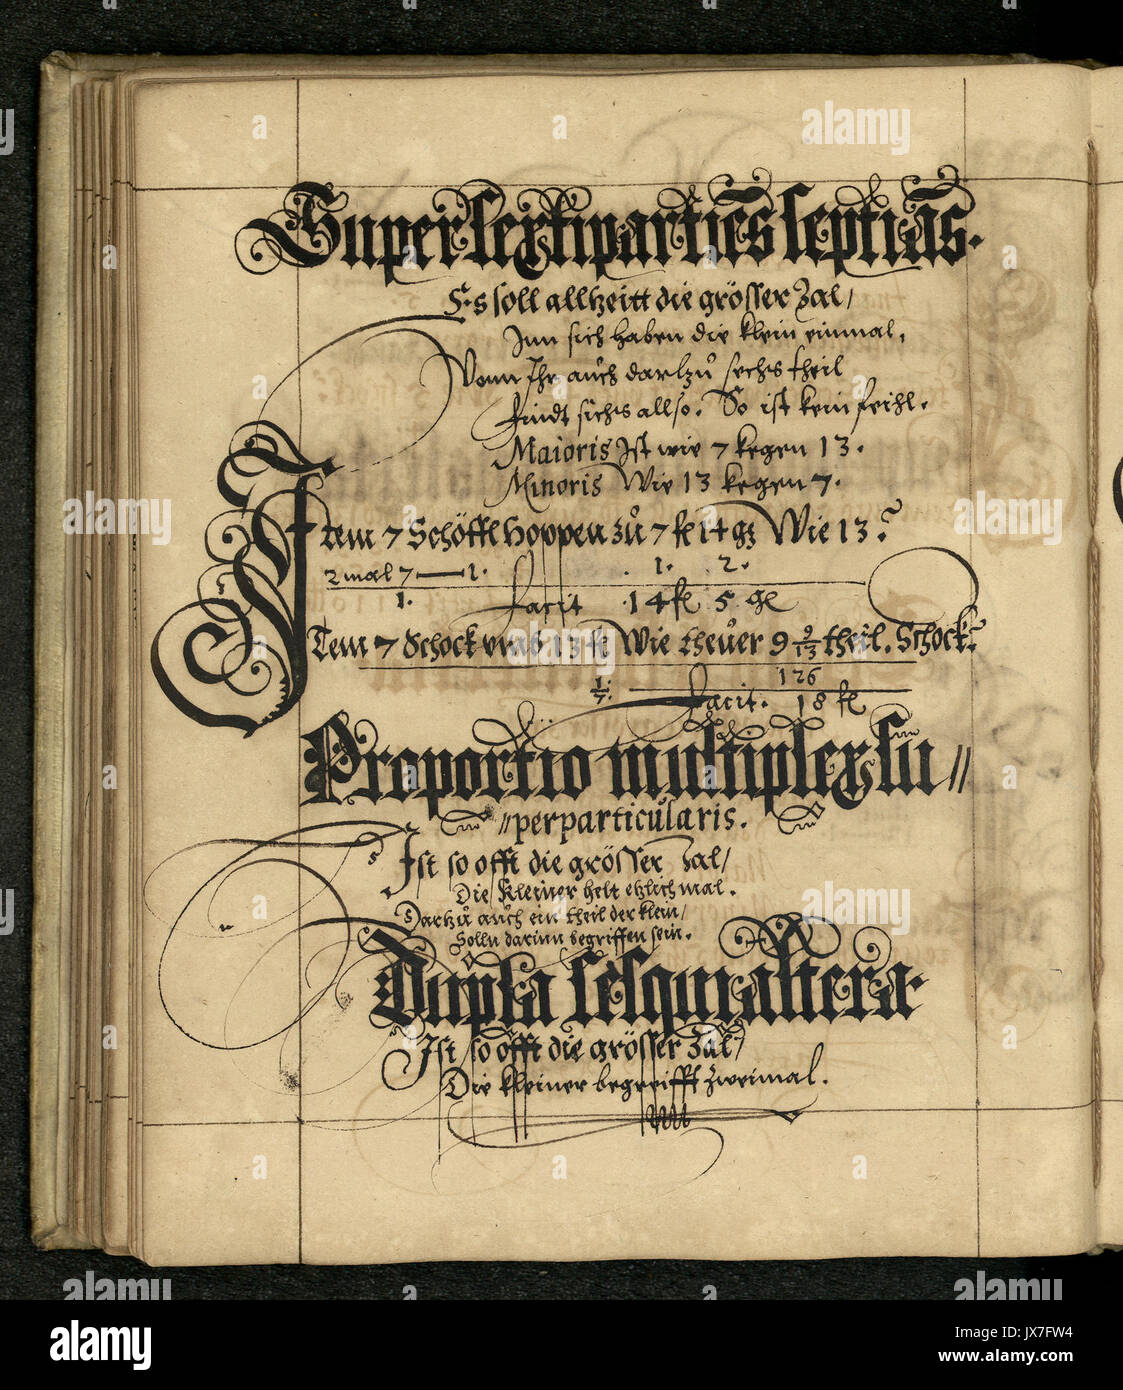 Supersextiparties septias.
Es soll allzeitt die grösser Zal/
Inn sich haben die klein einmal,
Wann Ihr auch darzů sechs theil
findt sichs allso. So ist kein feihl.
Maioris Ist wie 7 kegen 13.
Minoris Wie 13 kegen 7.
Item 7 Schöffl hoppen zů 7 fl 14 gz Wie 13?
2 mal 7 — 1. . 1. . 2.
1. facit . 14 fl 5 gl
Item 7 Schock vmb 13 fl Wie theuer 9 9/13 theil. Schock?
126
1/7. facit. 18 fl
Proportio multiplex su//
//perparticularis.
Ist so offt die grösser Zal/
Die Kleiner helt etzlich mal.
Dartzů auch ein theil der klein/
Solln darinn begriffen sein.
Dupla sesquialtera.
Ist so offt die grösser Zal/
Die kleiner begreifft zweimal.
alamy
a
JX7FW4
www.alamy.com